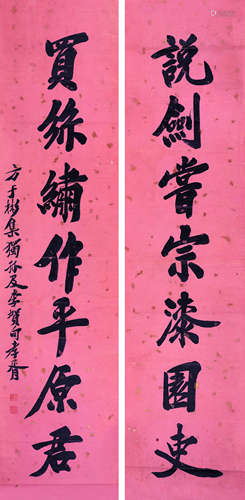 說劍嘗宗漆園吏
買絲繡作平原君
方于彬集獨孤及李賀句孝胥